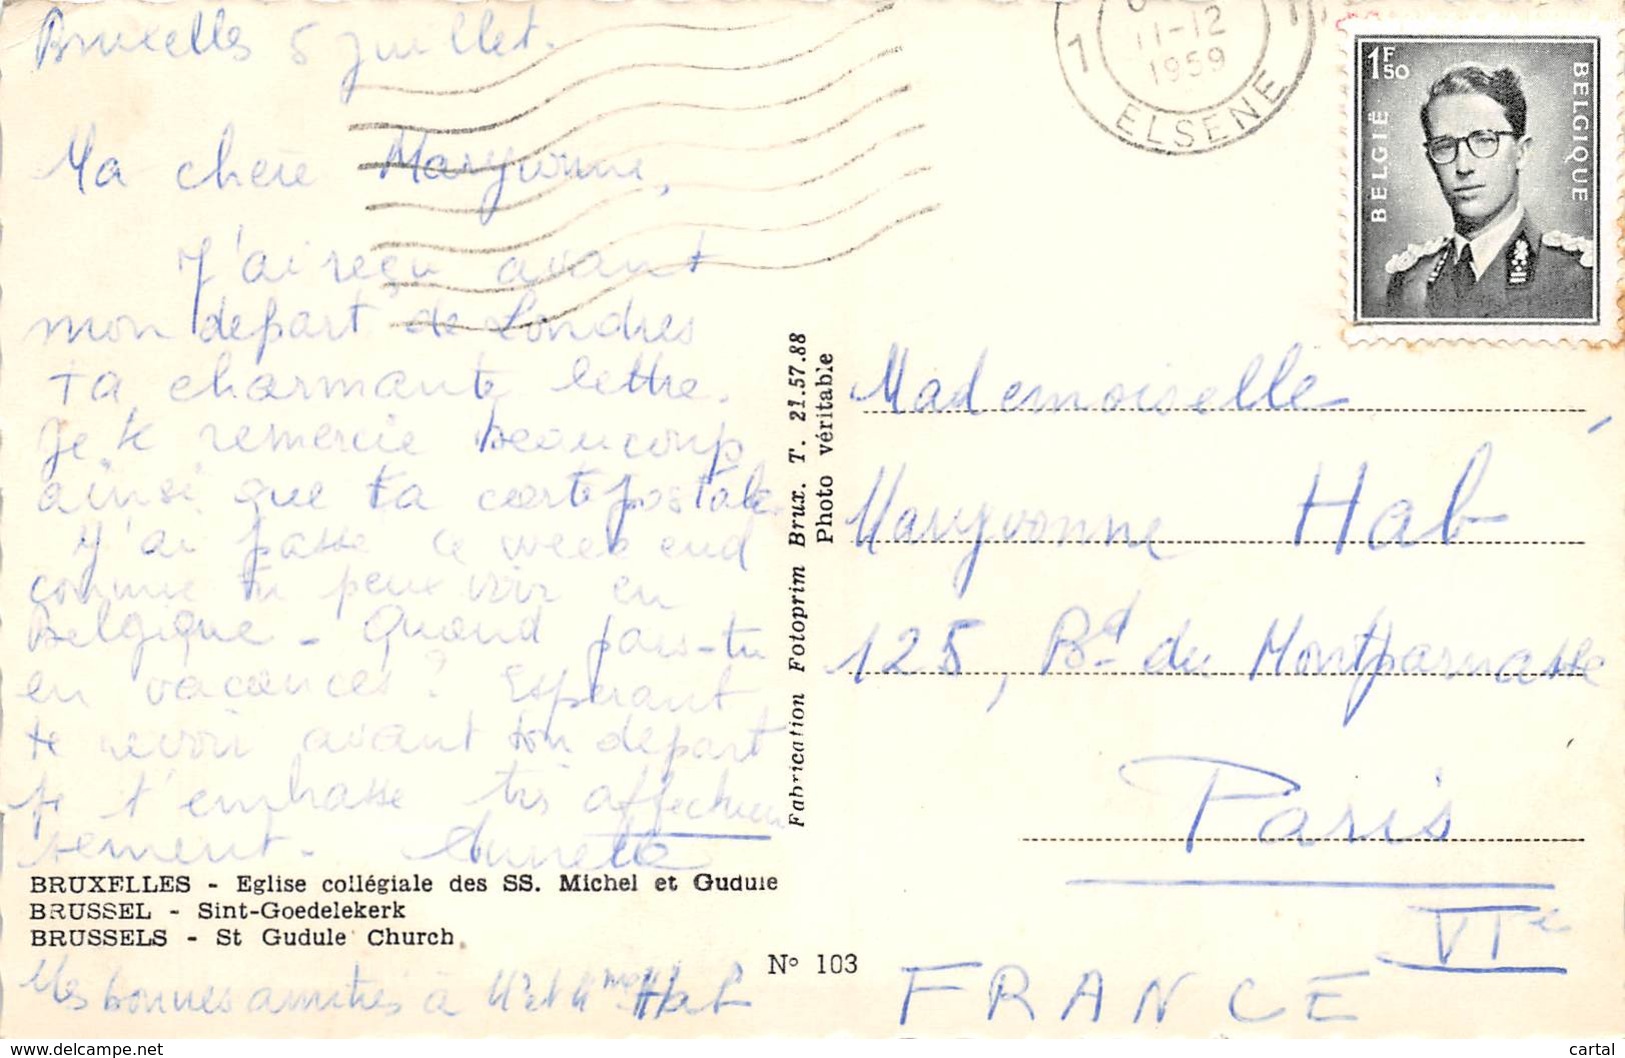 Bruxelles 5 juillet.
Ma chère Maryvonne,
J'ai reçu avant
mon depart de Londres
ta charmante lettre.
Je te remercie beaucoup
ainsi que ta carte postale
J'ai passé ce week end
comme tu peux voir en
Belgique - Quand pars-tu
en vacances? Esperant
te revoir avant ton depart
je t'embrasse très affectueu
sement - Annette
BRUXELLES - Eglise collégiale des SS. Michel et Gudule
BRUSSEL - Sint-Goedelekerk
BRUSSELS - St Gudule Church
Mes bonnes amitiés à Mr et Mme Hab
N° 103
Fabrication Fotoprim Brux. T. 21.57.88
Photo véritable
1
11-12
1959
ELSENE
1F50
BELGIË
BELGIQUE
Mademoiselle
Maryvonne Hab
125, Bd du Montparnasse
Paris
VIe
FRANCE
www.delcampe.net
cartal